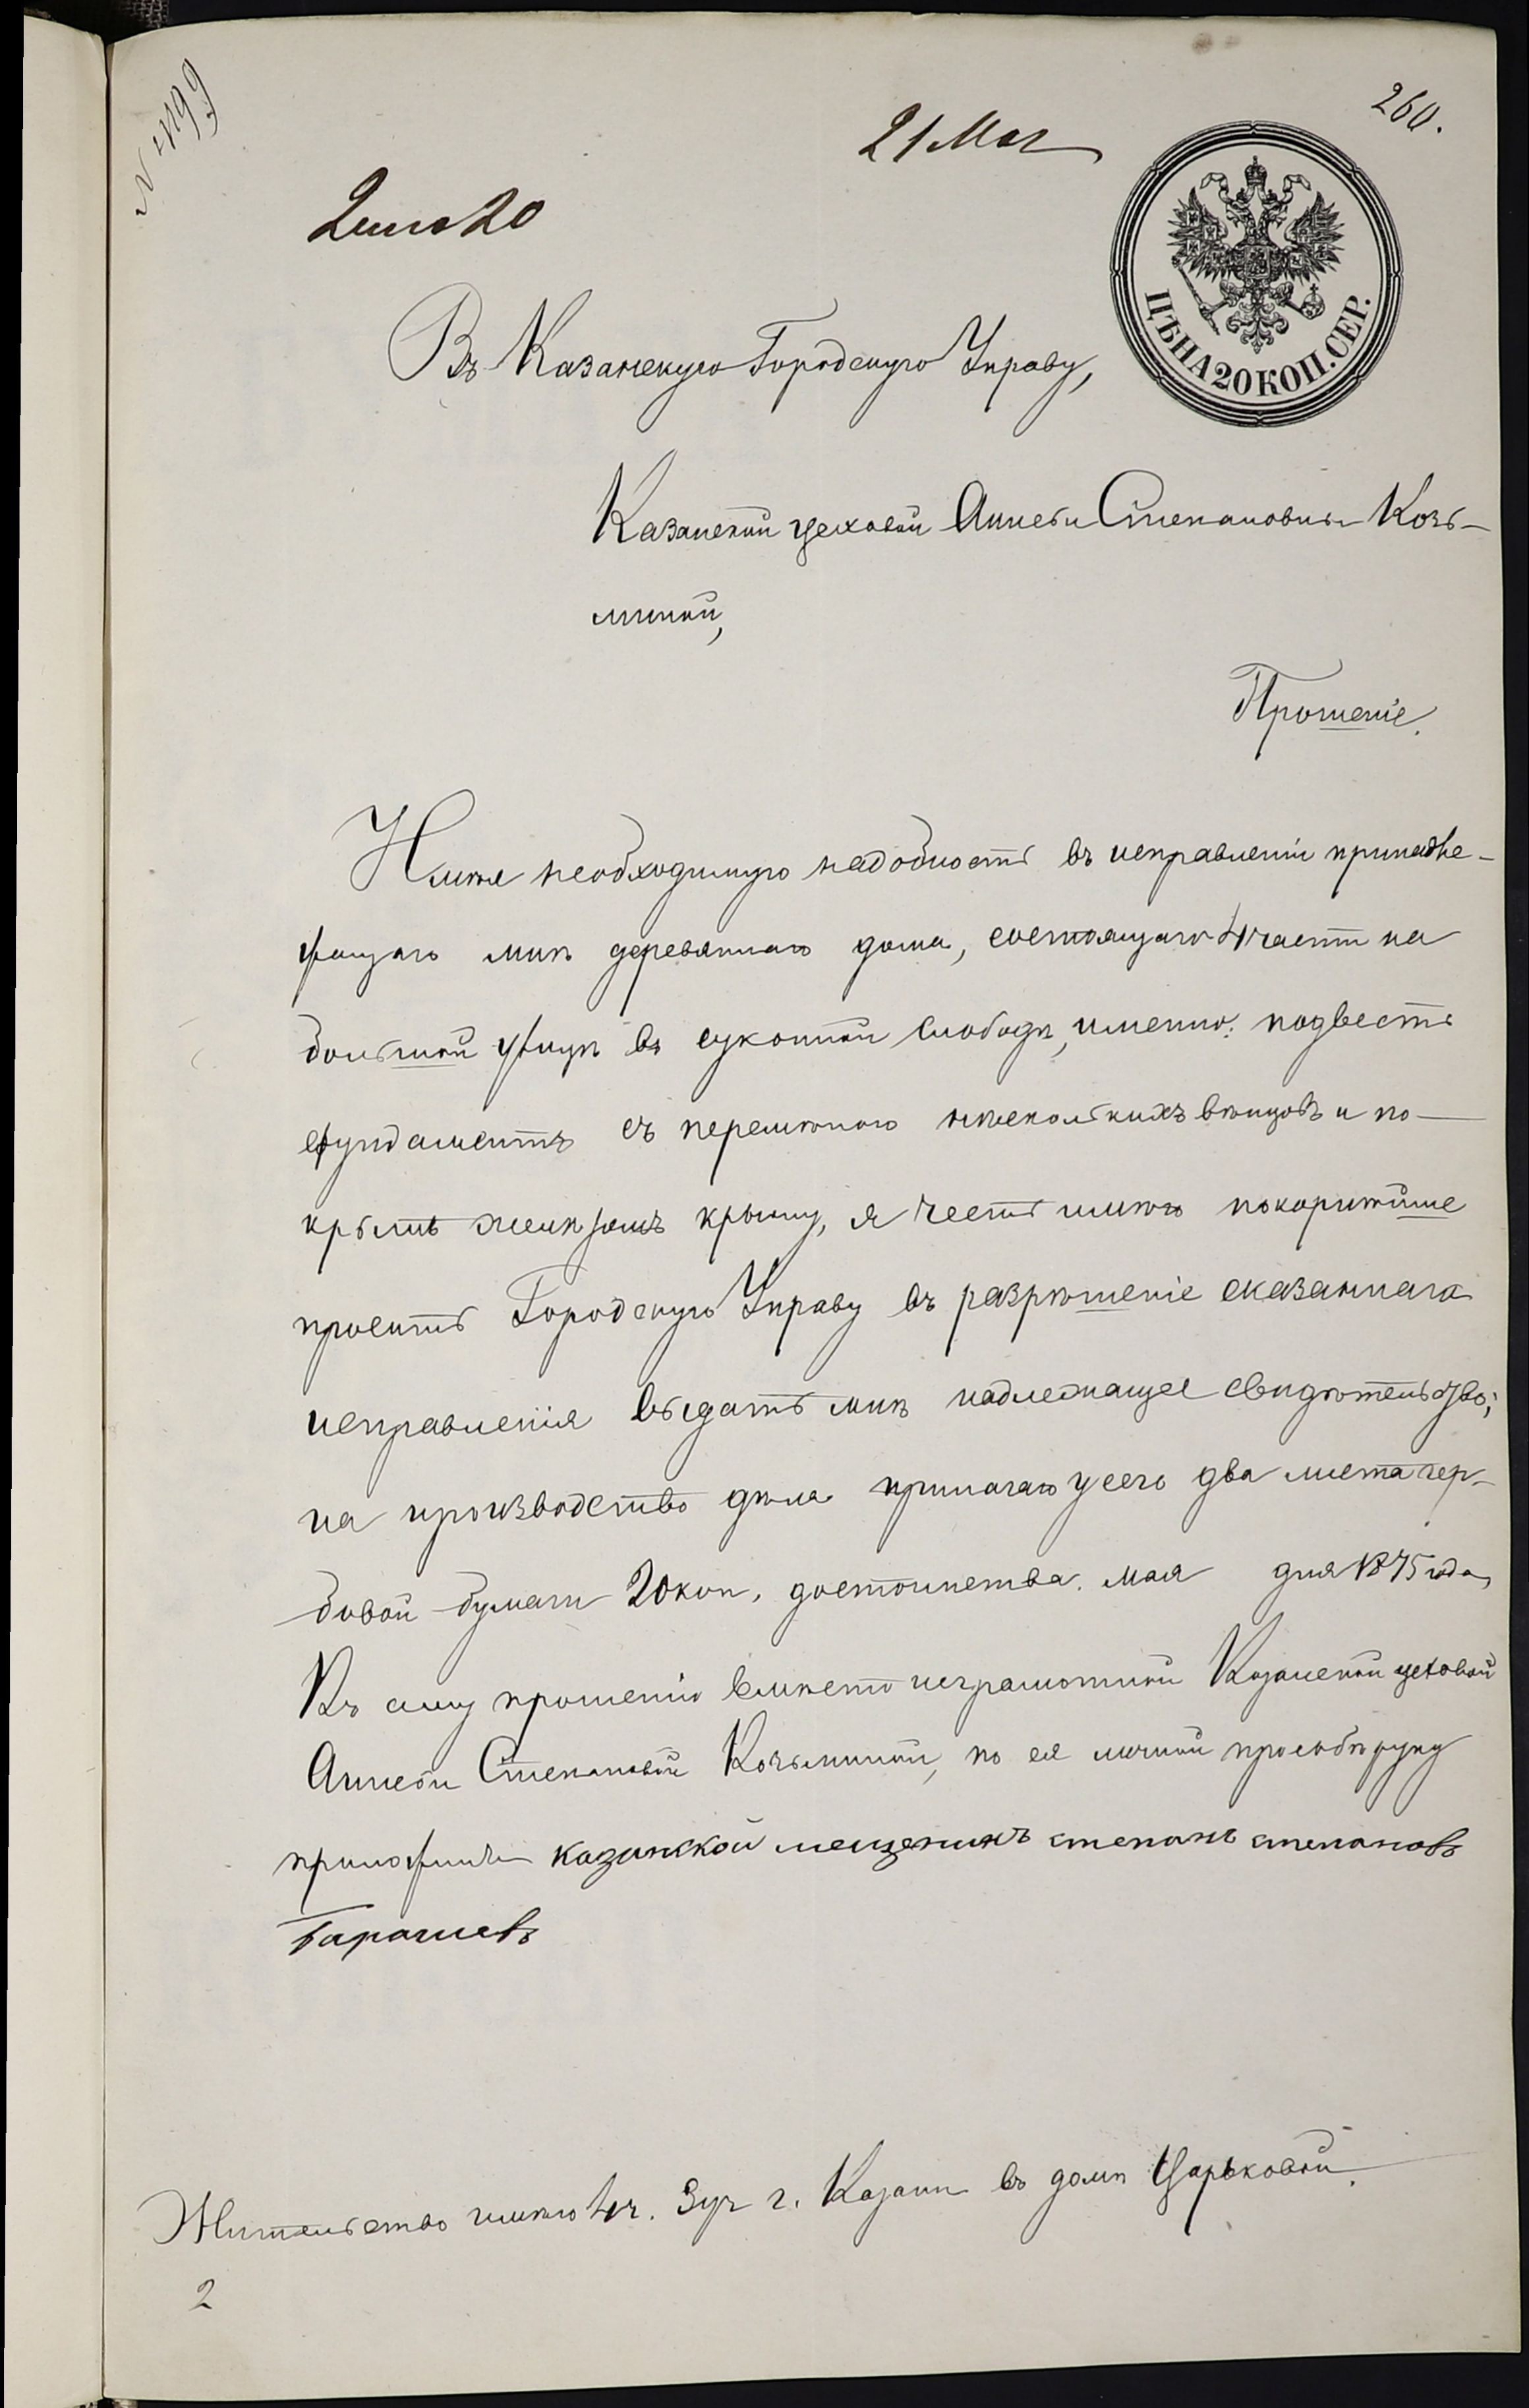 № 4199
260.
21 Мая
2 листа 20
ЦѢНА 20 КОП. СЕР.
Въ Казанскую Городскую Управу,
Казанской цеховой Аннеѣи Степановны Козь-
миной,
Прошеніе.
Имѣя необходимую надобность въ исправленіи принадле-
жащаго мнѣ деревяннаго дома, состоящаго 4 части на
большой улицѣ въ суконной слободѣ, именно: подвесть
фундаментъ съ перемѣною нѣсколькихъ вѣнцовъ и по-
крыть желѣзомъ крышу, я честь имѣю покорнѣйше
просить Городскую Управу въ разрѣшеніе сказаннаго
исправленія выдать мнѣ надлежащее свидѣтельство;
на производство дѣла прилагаю у сего два листа гер-
бовой бумаги 20 коп. достоинства. Мая дня 1875 года,
Къ сему прошенію вмѣсто неграмотной Казанской цеховой
Степановой Козьминой, по ея личной просьбѣ руку
приложилъ казанской мещенинъ степанъ степановъ
Жительство имѣю 4 ч. 3 уч г. Казани въ домѣ Царьковой.
2